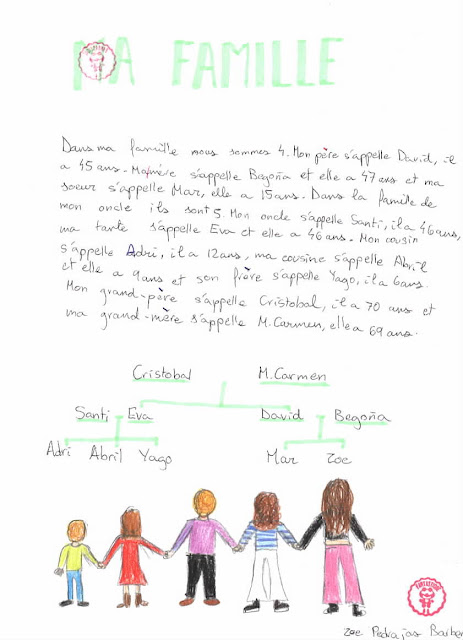 MA FAMILLE
Dans ma famille nous sommes 4. Mon père s'appelle David, il
a 45 ans. Ma mère s'appelle Begoña et elle a 47 ans et ma
soeur s'appelle Mar, elle a 15 ans. Dans la famille de
mon oncle ils sont 5. Mon oncle s'appelle Santi, il a 46 ans,
ma tante s'appelle Eva et elle a 46 ans. Mon cousin
s'appelle Adri, il a 12 ans, ma cousine s'appelle Abril
et elle a 9 ans et son frère s'appelle Yago, il a 6 ans.
Mon grand-père s'appelle Cristobal, il a 70 ans et
ma grand-mère s'appelle M.Carmen, elle a 69 ans.
Cristobal M.Carmen
Santi Eva David Begoña
Adri Abril Yago Mar Zoe
Zoe Pedrajas